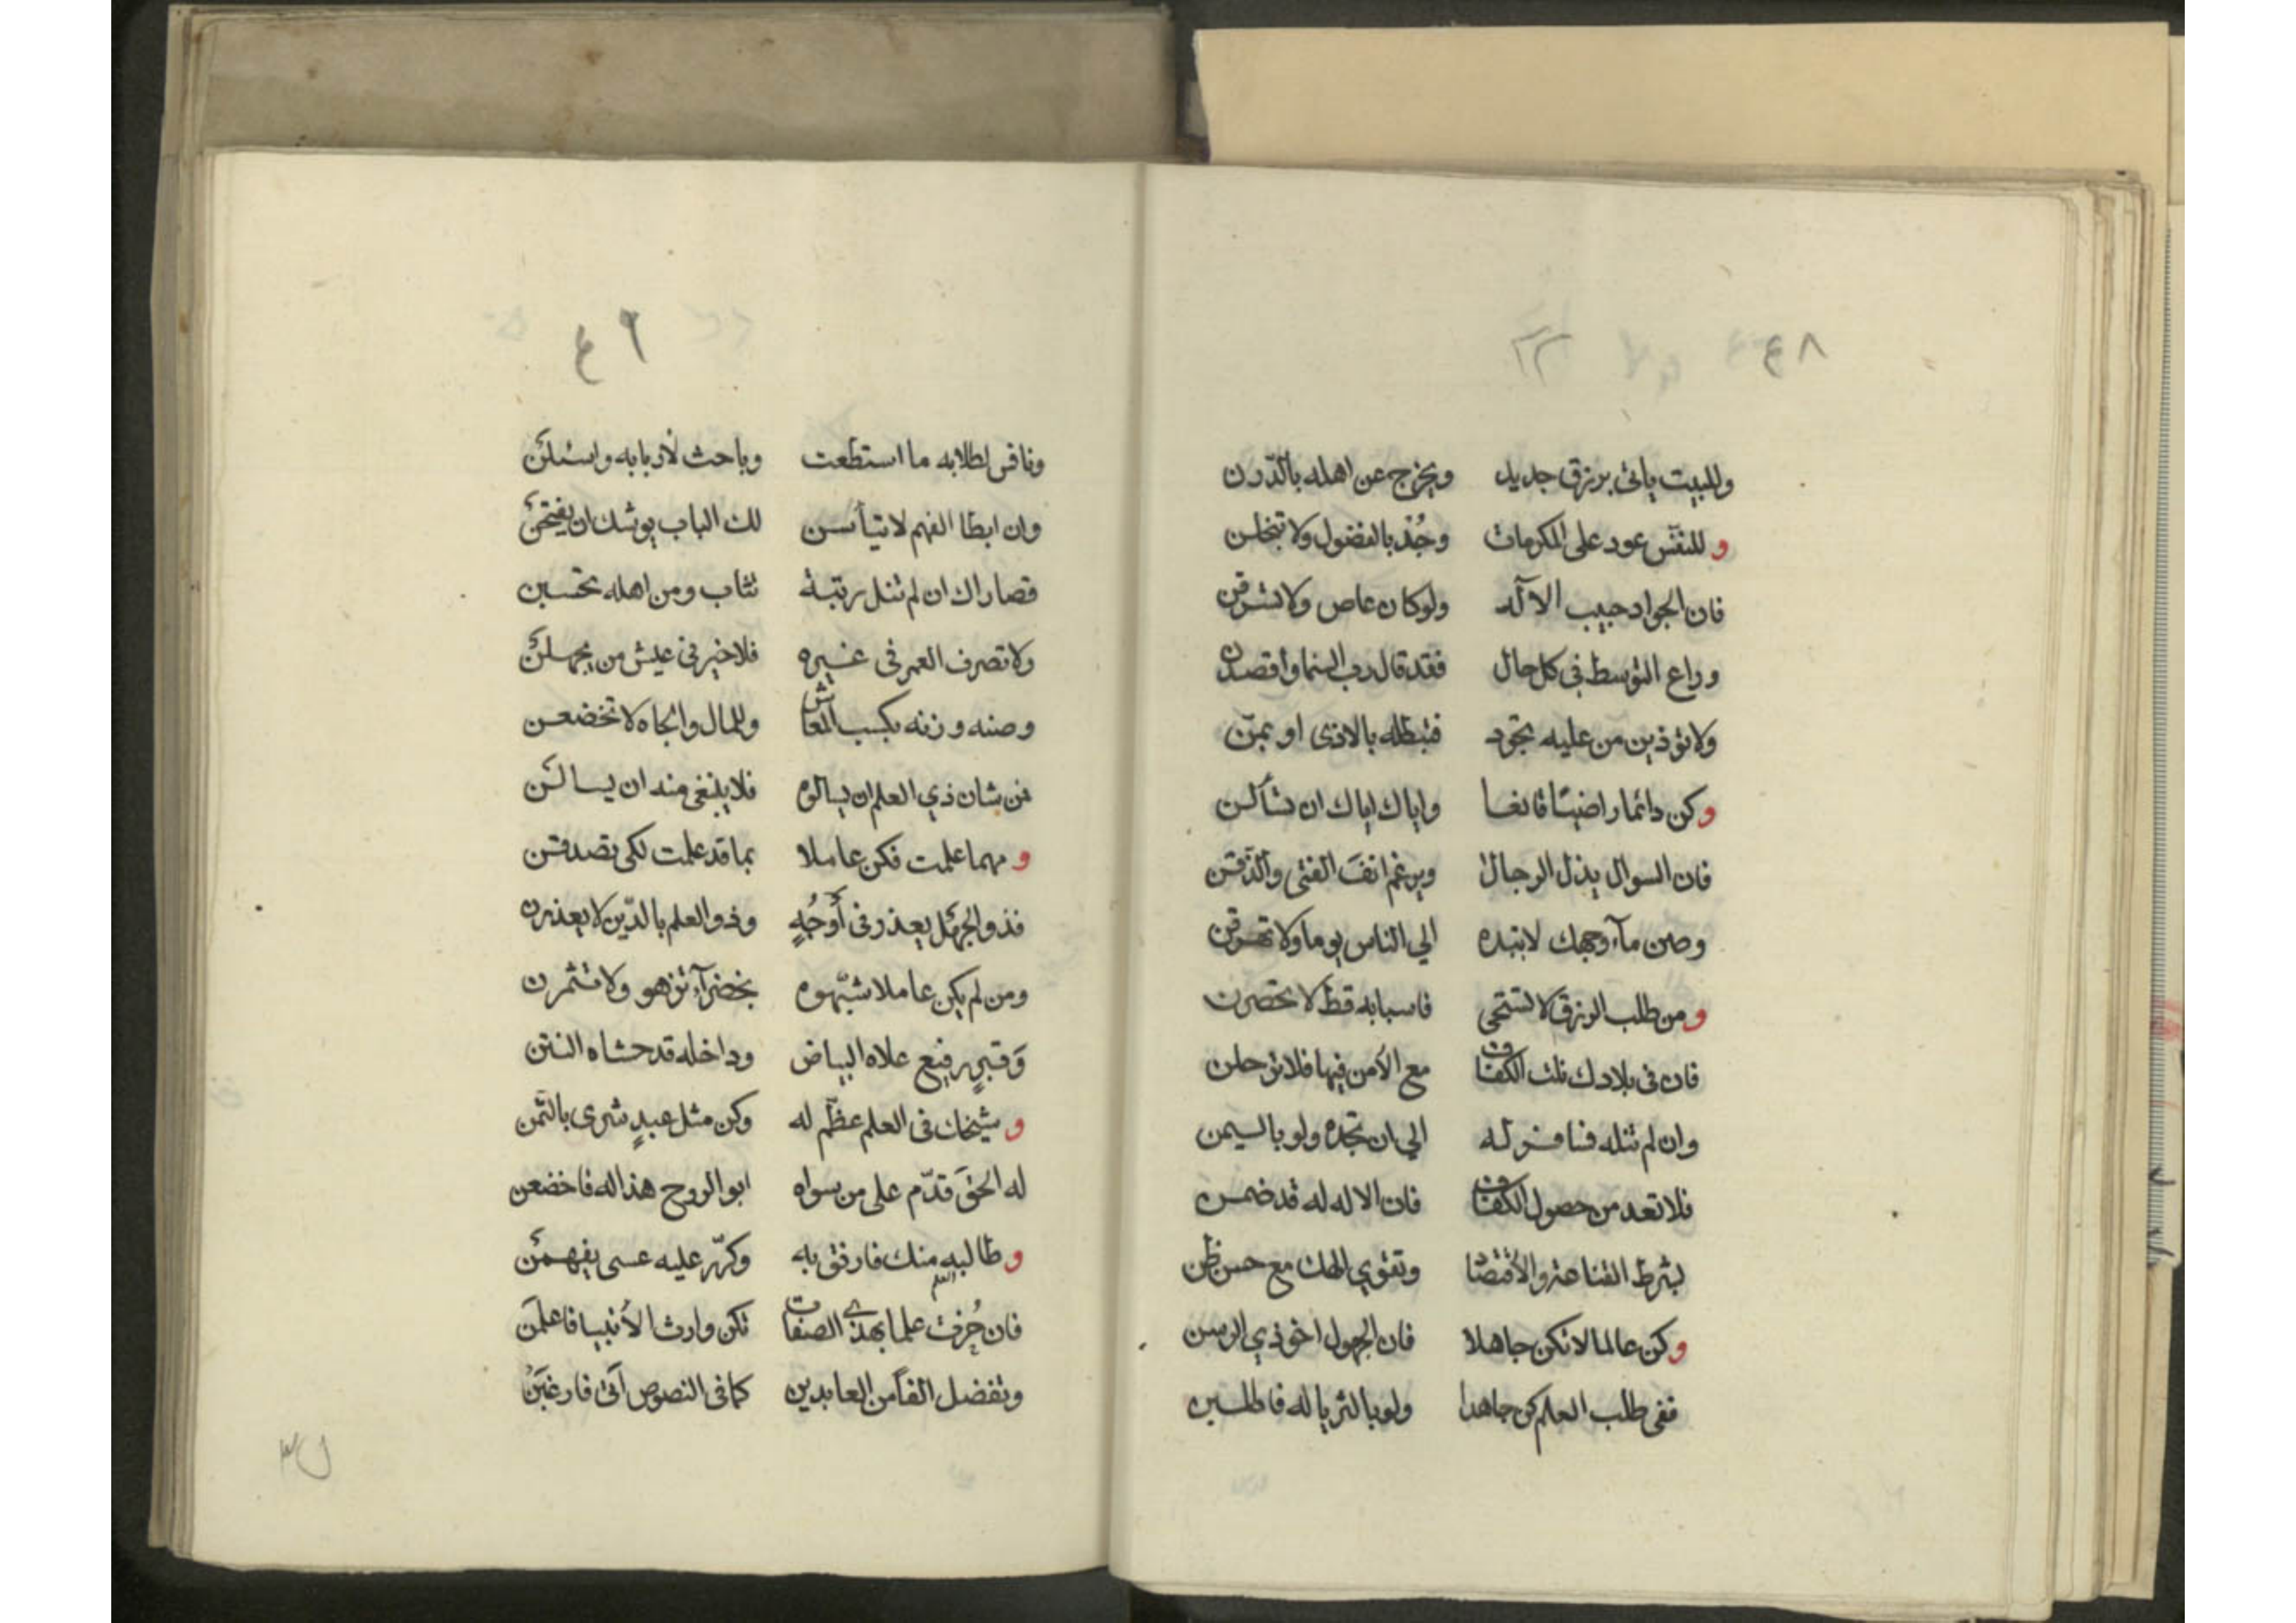 ٤٨ ٢٢
وللبيت يأتى برزق جديد ويخرج عن اهله بالدّرن
و للنفس عود على المكرمات وجُدْ بالفضول ولا تبخلن
فان الجواد حبيب الآله ولو كان عاص ولا تسرفن
وراع التوسط فى كل حال فقد قال رب السما واقصدن
ولا تؤذين من عليه تجود فتبطله بالاذى او بمنّ
وكن دائما راضيًا قانعا واياك اياك ان تسألن
فان السوال يذل الرجال ويرغم انفَ الفتى والذّقن
وصن مآء وجهك لا تبده الي الناس يوما ولا تهرقن
ومن طلب الرزق لا تستحى فاسبابه قطّ لا تحصرن
فان فى بلادك نلت الكفاف مع الأمن فيها فلا ترحلن
وان لم تنله فسافر له الي ان تجده ولو باليمن
فلا تعد من حصول الكفاف فان الاله له قد ضمن
بشرط القناعة والأقتصا وتقوي الهك مع حسن ظن
وكن عالما لا تكن جاهلا فان الجهول اخو ذي الرسن
ففى طلب العلم كن جاهدا ولو بالثريا له فاطلبن
٤٩
ونافس لطلابه ما استطعت وباحث لأربابه واسئلن
وان ابطا الفهم لا تيأسن لك الباب يوشك ان يفتحن
قصاراك ان لم تنل رتبة تثاب ومن اهله تحسبن
ولا تصرف العمر فى غيره فلا خير فى عيش من يجهلن
وصنه وزنه بكسب المعاش وللمال والجاه لا تخضعن
فمن شان ذي العلم ان يسالوه فلا ينبغى منه ان يسالن
و مهما علمت فكن عاملا بما قد علمت لكى تصدقن
فذو الجهل يعذر فى أوجُهٍ وذو العلم بالدّين لا يعذرن
ومن لم يكن عاملا شبّهوه بخضرآء تزهو ولا تثمرن
وَقبرٍ رفيع علاه البياض وداخله قد حشاه النتن
و شيخك فى العلم عظّم له وكن مثل عبدٍ شرى بالثمن
له الحقَ قدّم على من سواه ابو الروح هذا له فاخضعن
و طالبه منك فارفق به وكرّر عليه عسى يفهمن
فان حُزت علما بهذي الصفات تكن وارث الأنبيا فاعلمن
وتفضل الفاً من العابدين كما فى النصوص اتى فارغبن